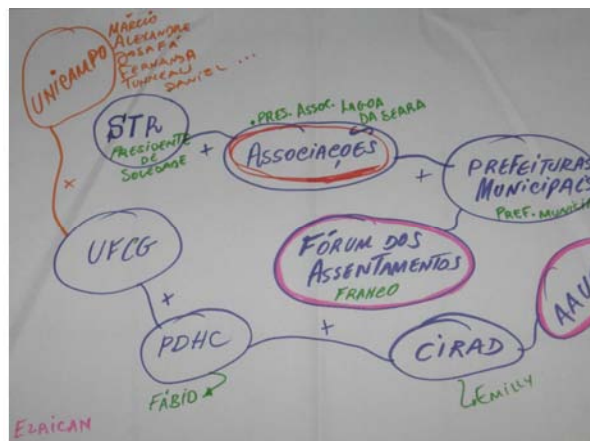 UNICAMPO
MÁRCIO
ALEXANDRE
FERNANDA
DANIEL ...
STR
PRESIDENTE
DE
SOLEDADE
+
. PRES. ASSOC. LAGOA
DA SERRA
ASSOCIAÇÕES
+
PREFEITURAS
MUNICIPAIS
PREF. MUNICI
x
UFCG
FÓRUM DOS
ASSENTAMENTOS
FRANCO
+
PDHC
FÁBIO
+
CIRAD
EMILLY
AAU
ELAICAN